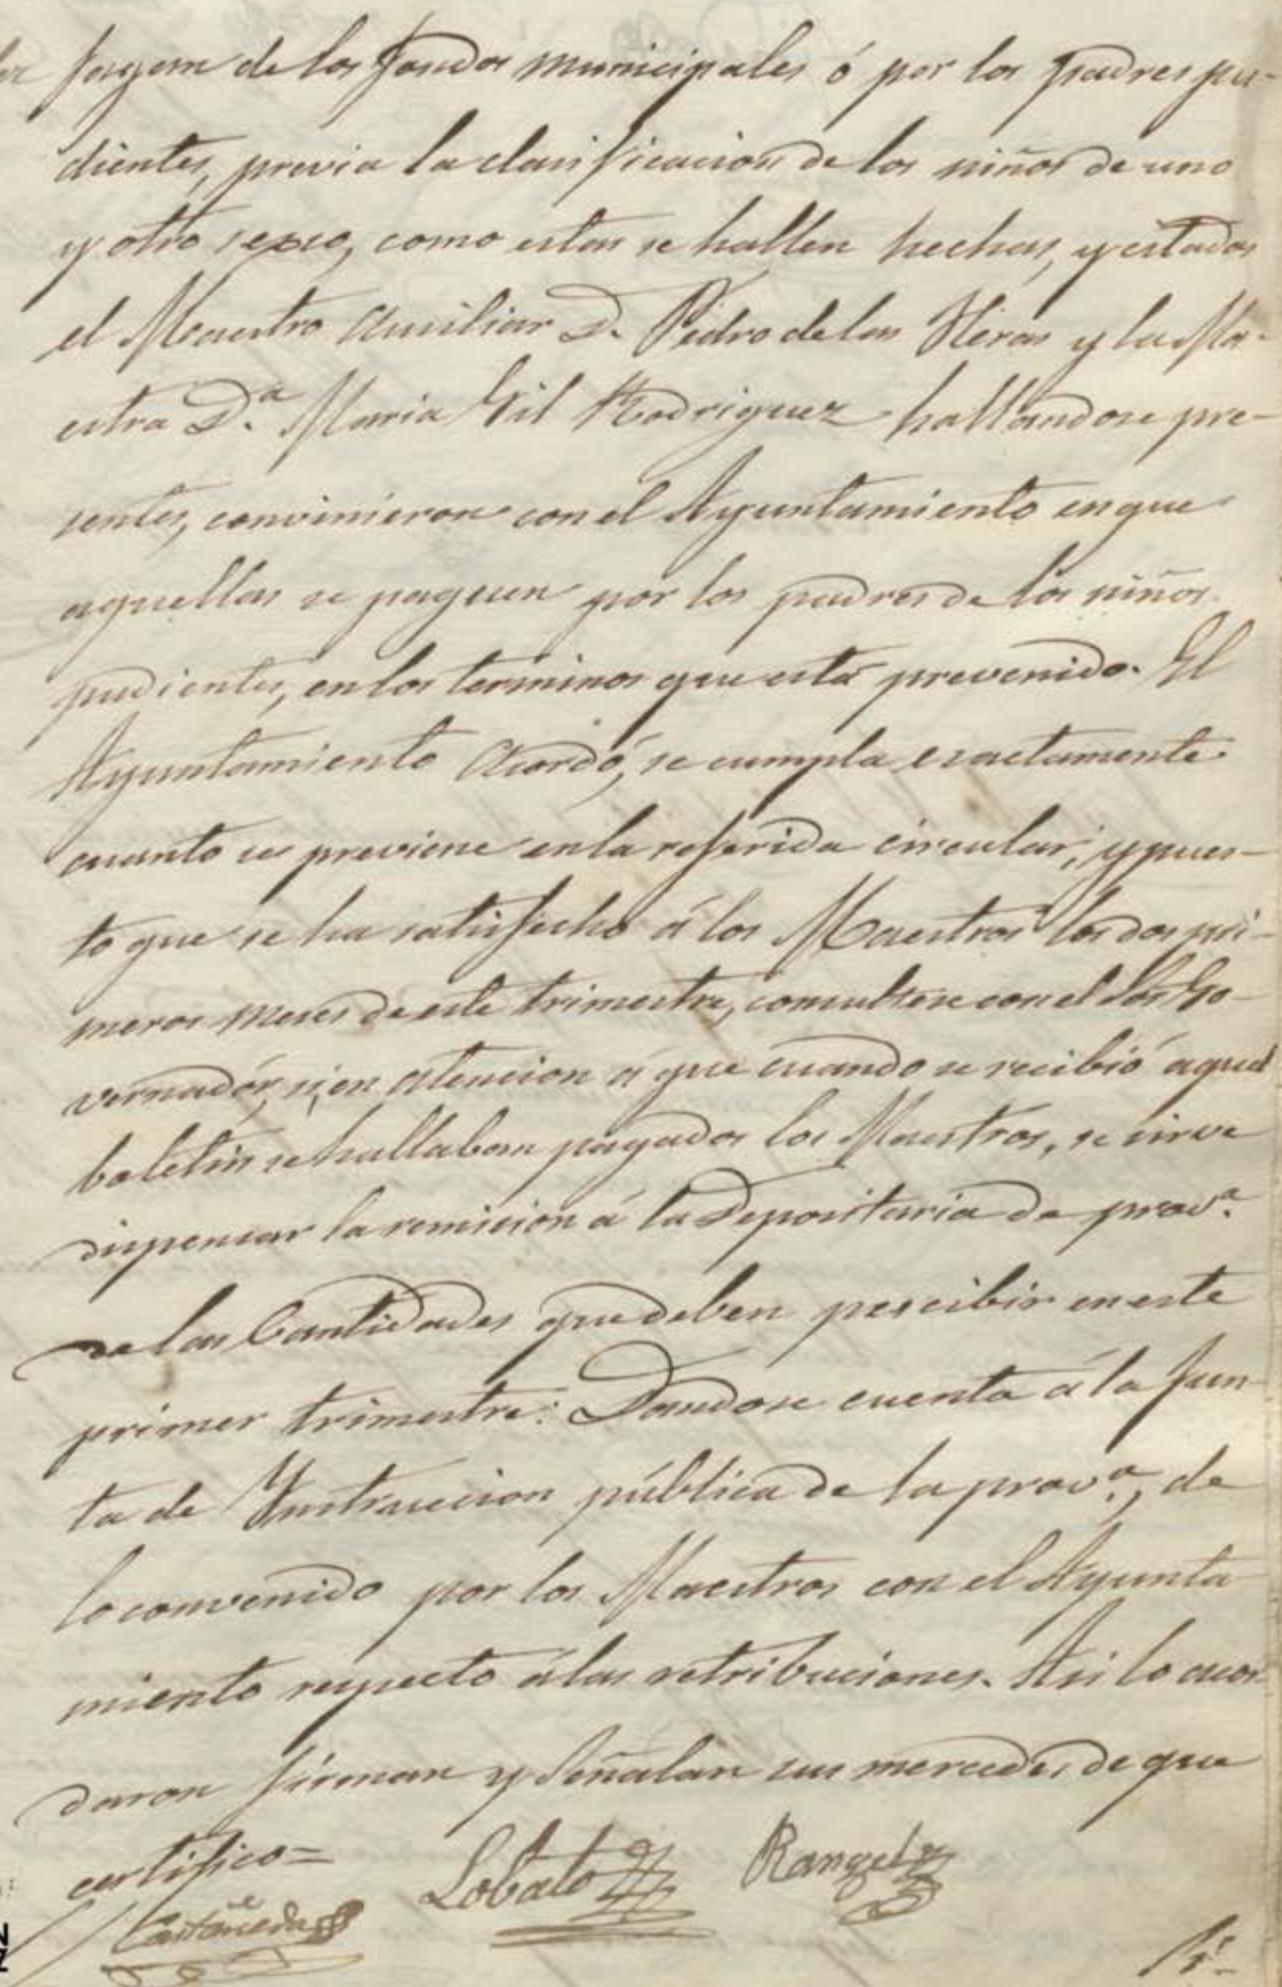 paguen de los fondos municipales ó por los padres pu-
dientes, previa la clasificacion de los niños de uno
y otro sexso, como estas se hallen hechas, y citados
el Maestro Auxiliar D. Pedro de las Heras y la Ma-
estra D.ª Maria Gil Rodriguez hallandose pre-
sentes, convinieron con el Ayuntamiento en que
aquellas se paguen por los padres de los niños
pudientes, en los terminos que está prevenido. El
Ayuntamiento Acordó, se cumpla exactamente
cuanto se previene en la referida circular, y pues-
to que se ha satisfecho á los Maestros los dos pri-
meros meses de este trimestre, consultese con el Go-
vernadór, si, en atencion á que cuando se recibió aquel
boletin se hallaban pagados los Maestros, se sirve
dispensar la remision á la Depositaria de prov.ª
de las Cantidades que deben percibir en este
primer trimestre: Dandose cuenta á la Jun-
ta de Instruccion pública de la prov.ª, de
lo convenido por los Maestros con el Ayunta-
miento respecto á las retribuciones. Asi lo acor-
daron firman y señalan sus mercedes de que
certifico=
Castañeda Lobato Rangel